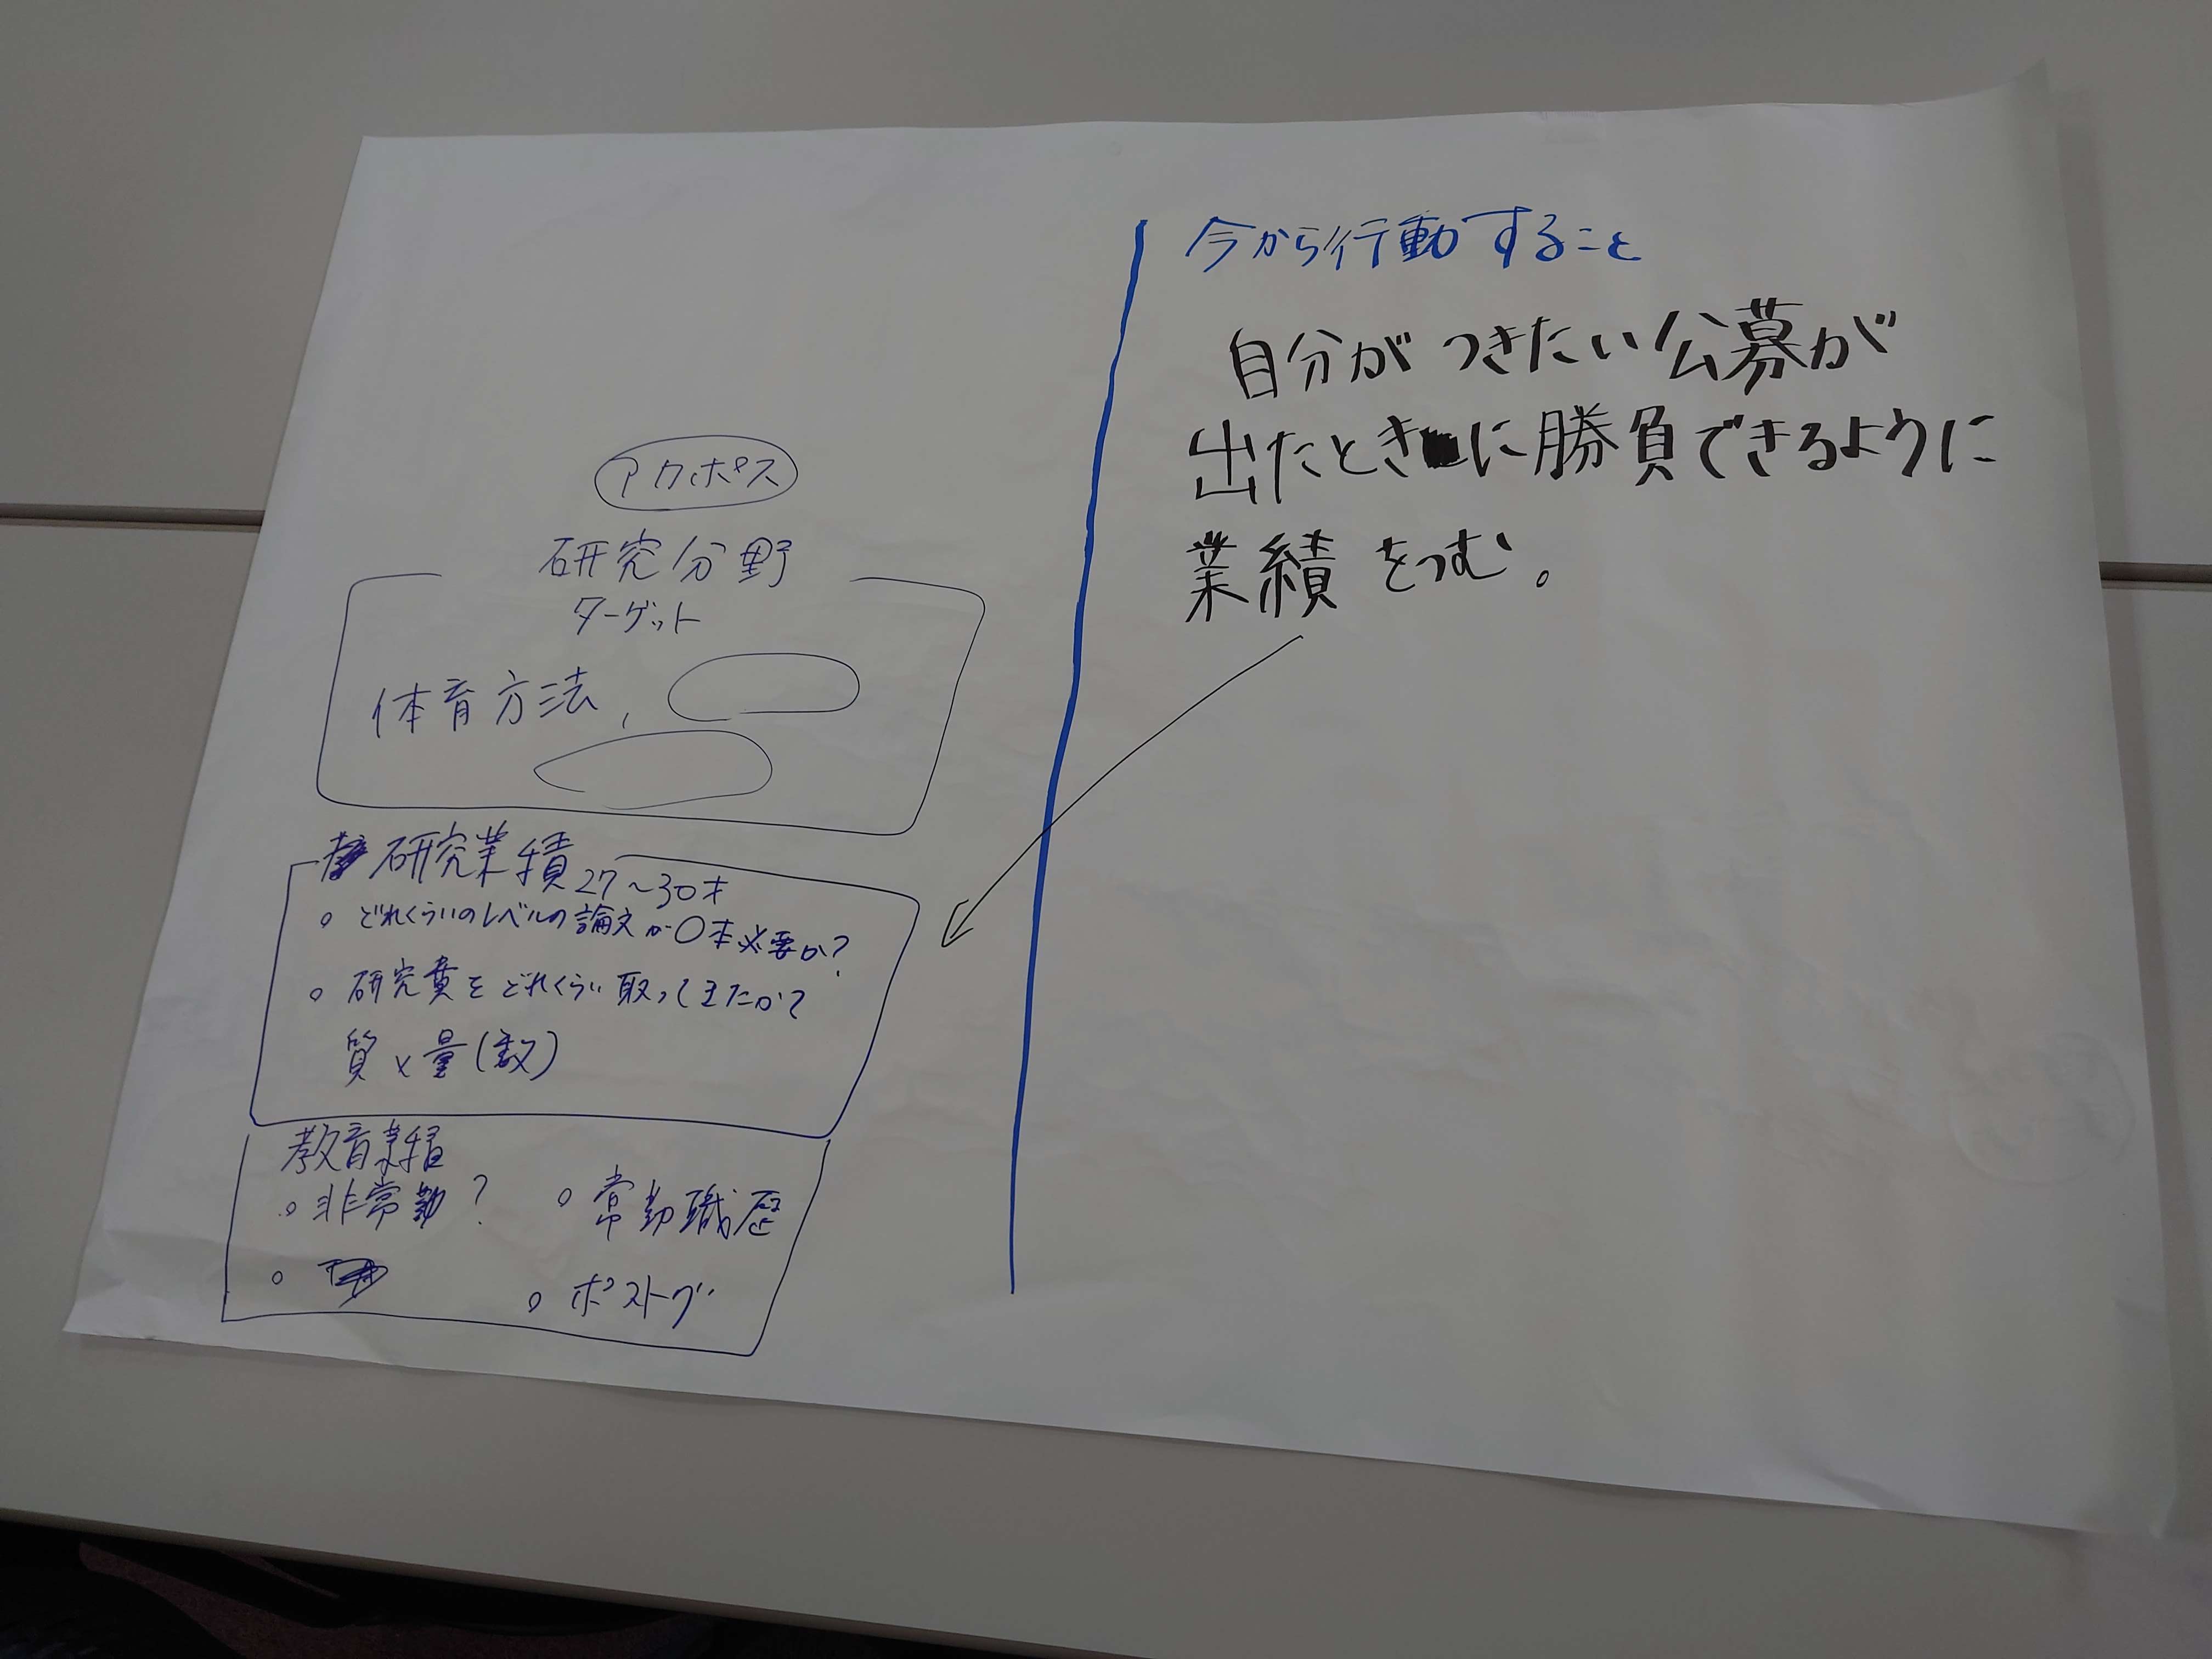 アカポス
研究分野
ターゲット
体育方法,
研究業積 27～30才
○ どれくらいのレベルの論文が○本必要か?
○ 研究費をどれくらい取ってきたか?
質×量(数)
教育業積
○ 非常勤?
○ 常勤職歴
○
○ ポストグ
今から行動すること
自分がつきたい公募が
出たときに勝負できるように
業績をつむ。